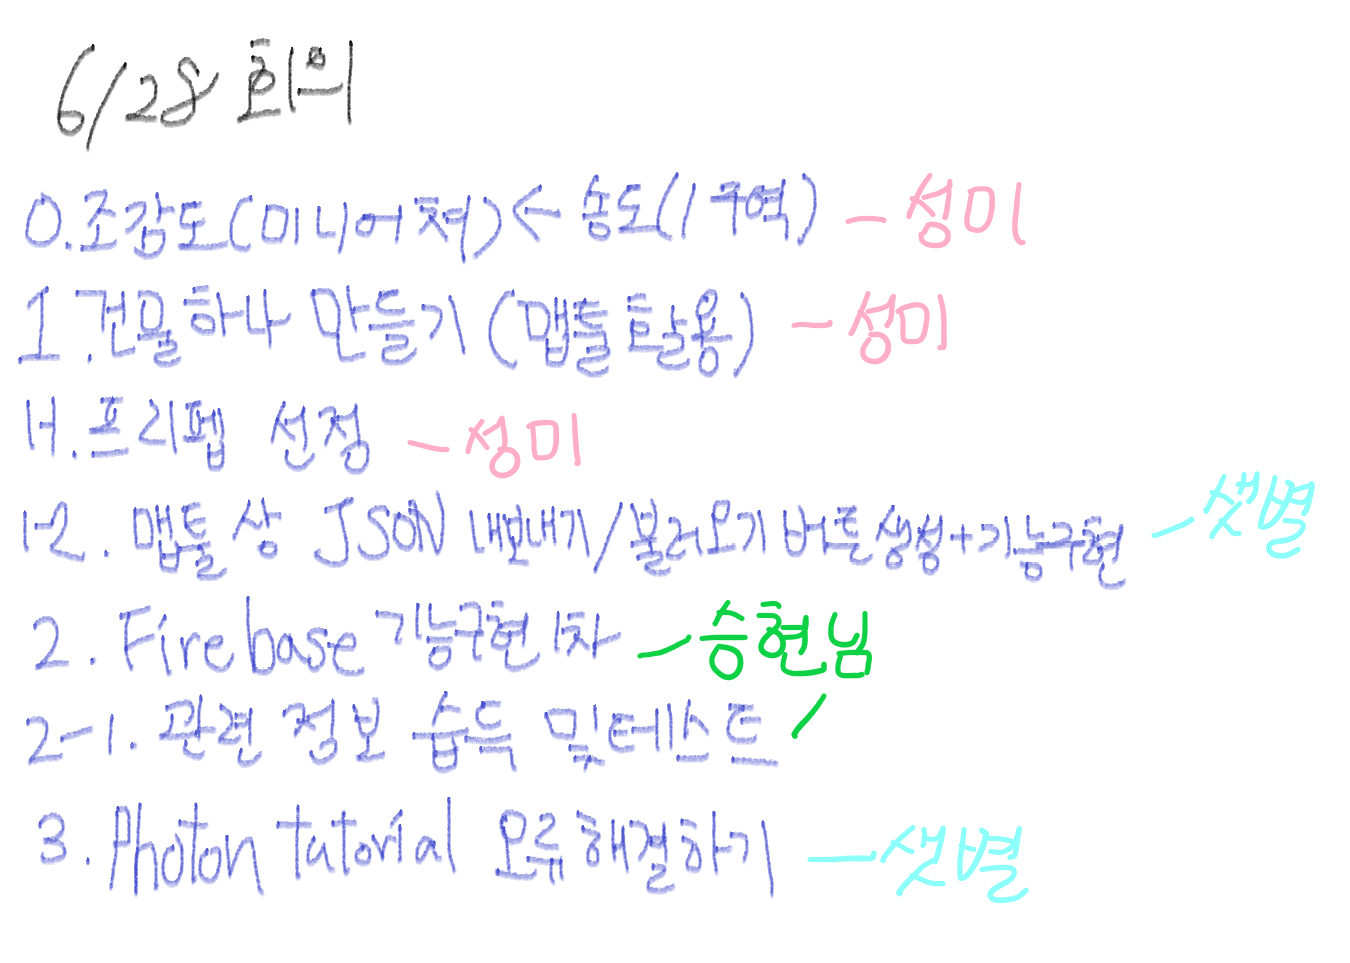 6/28 회의
0. 조감도(미니어쳐) ← 송도(1구역) - 성미
1. 건물하나 만들기 (맵툴 활용) - 성미
1-1. 프리펩 선정 - 성미
1-2. 맵툴 상 JSON 내보내기/불러오기 버튼 생성+기능구현 - 샛별
2. Firebase 기능구현 1차 - 승현님
2-1. 관련 정보 습득 및 테스트
3. Photon tutorial 오류 해결하기 - 샛별